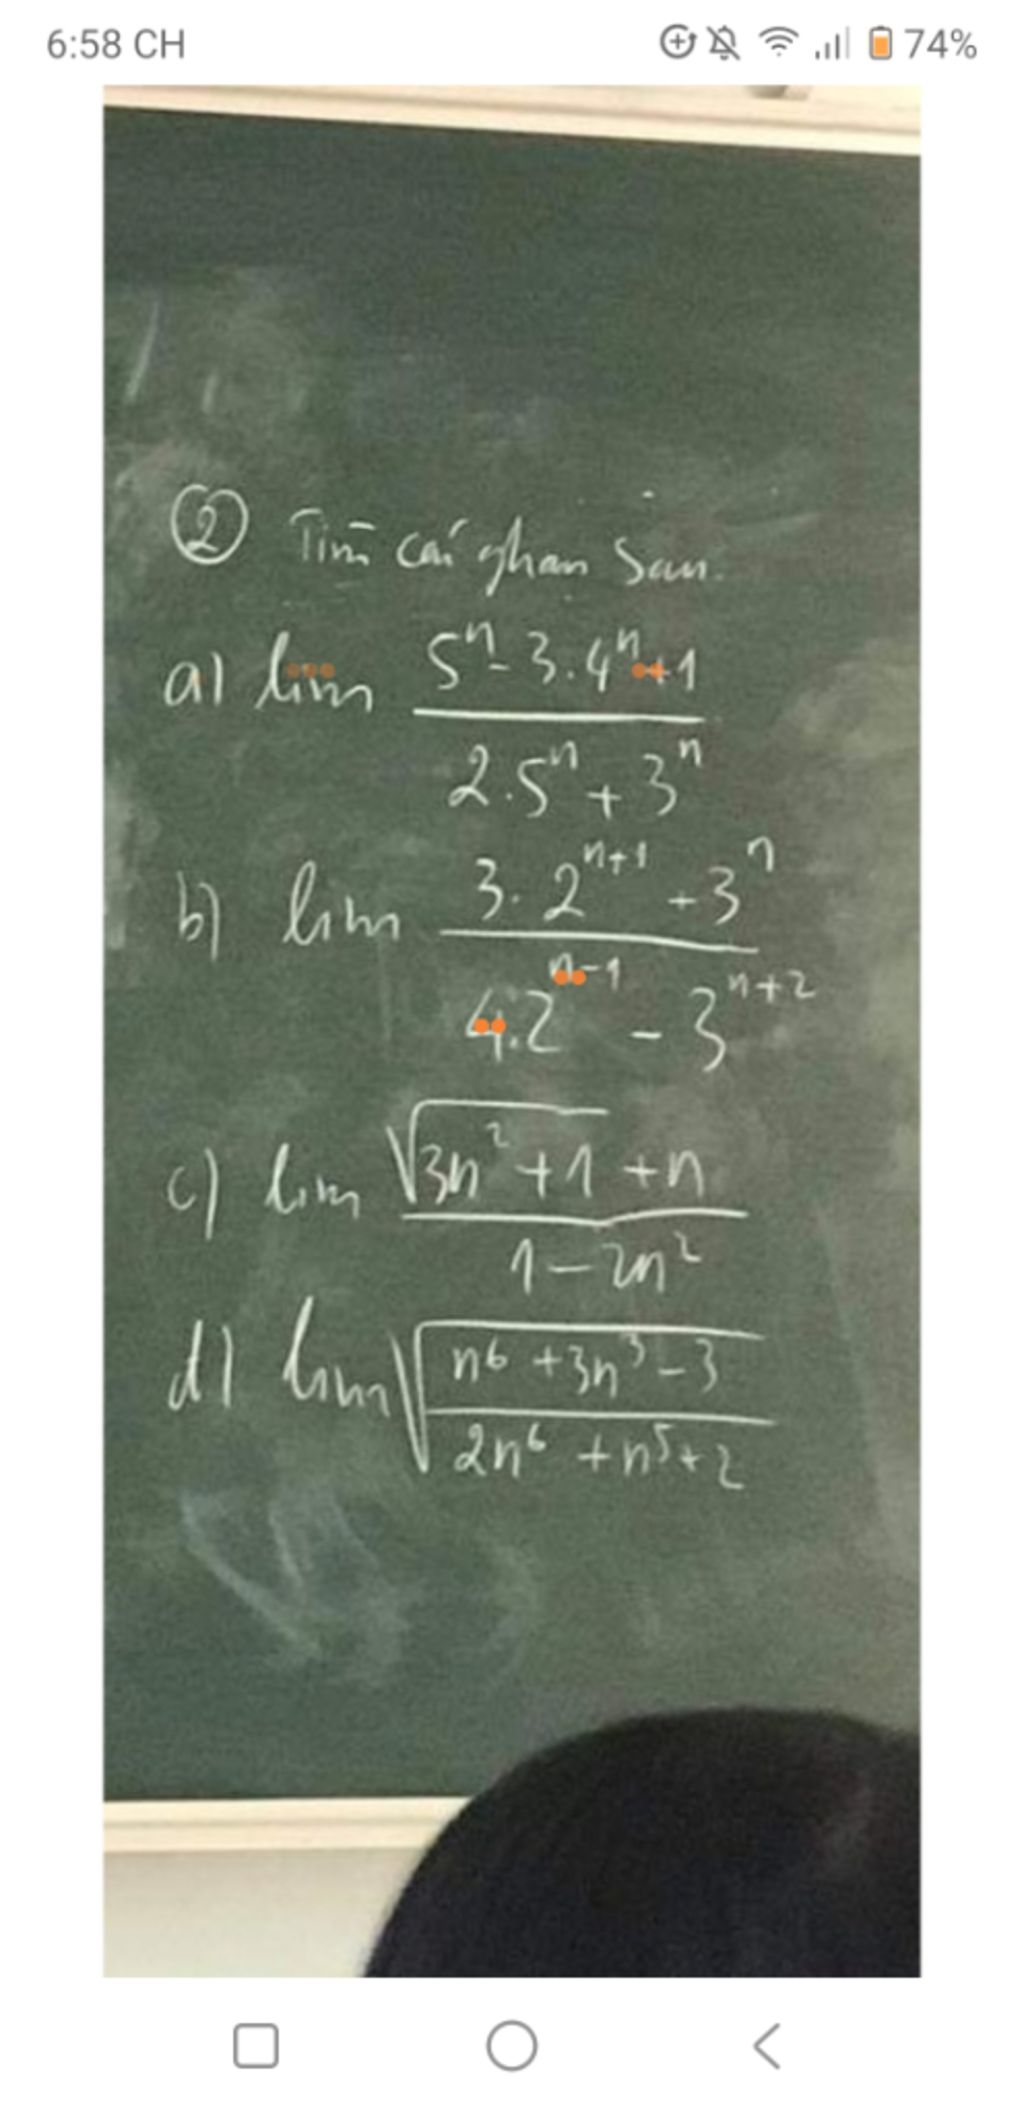 6:58 CH 74%
② Tìm cái ghạn sau.
a) lim (5ⁿ - 3.4ⁿ + 1) / (2.5ⁿ + 3ⁿ)
b) lim (3.2ⁿ⁺¹ + 3ⁿ) / (4.2ⁿ⁻¹ - 3ⁿ⁺²)
c) lim (√(3n² + 1) + n) / (1 - 2n²)
d) lim √((n⁶ + 3n³ - 3) / (2n⁶ + n⁵ + 2))